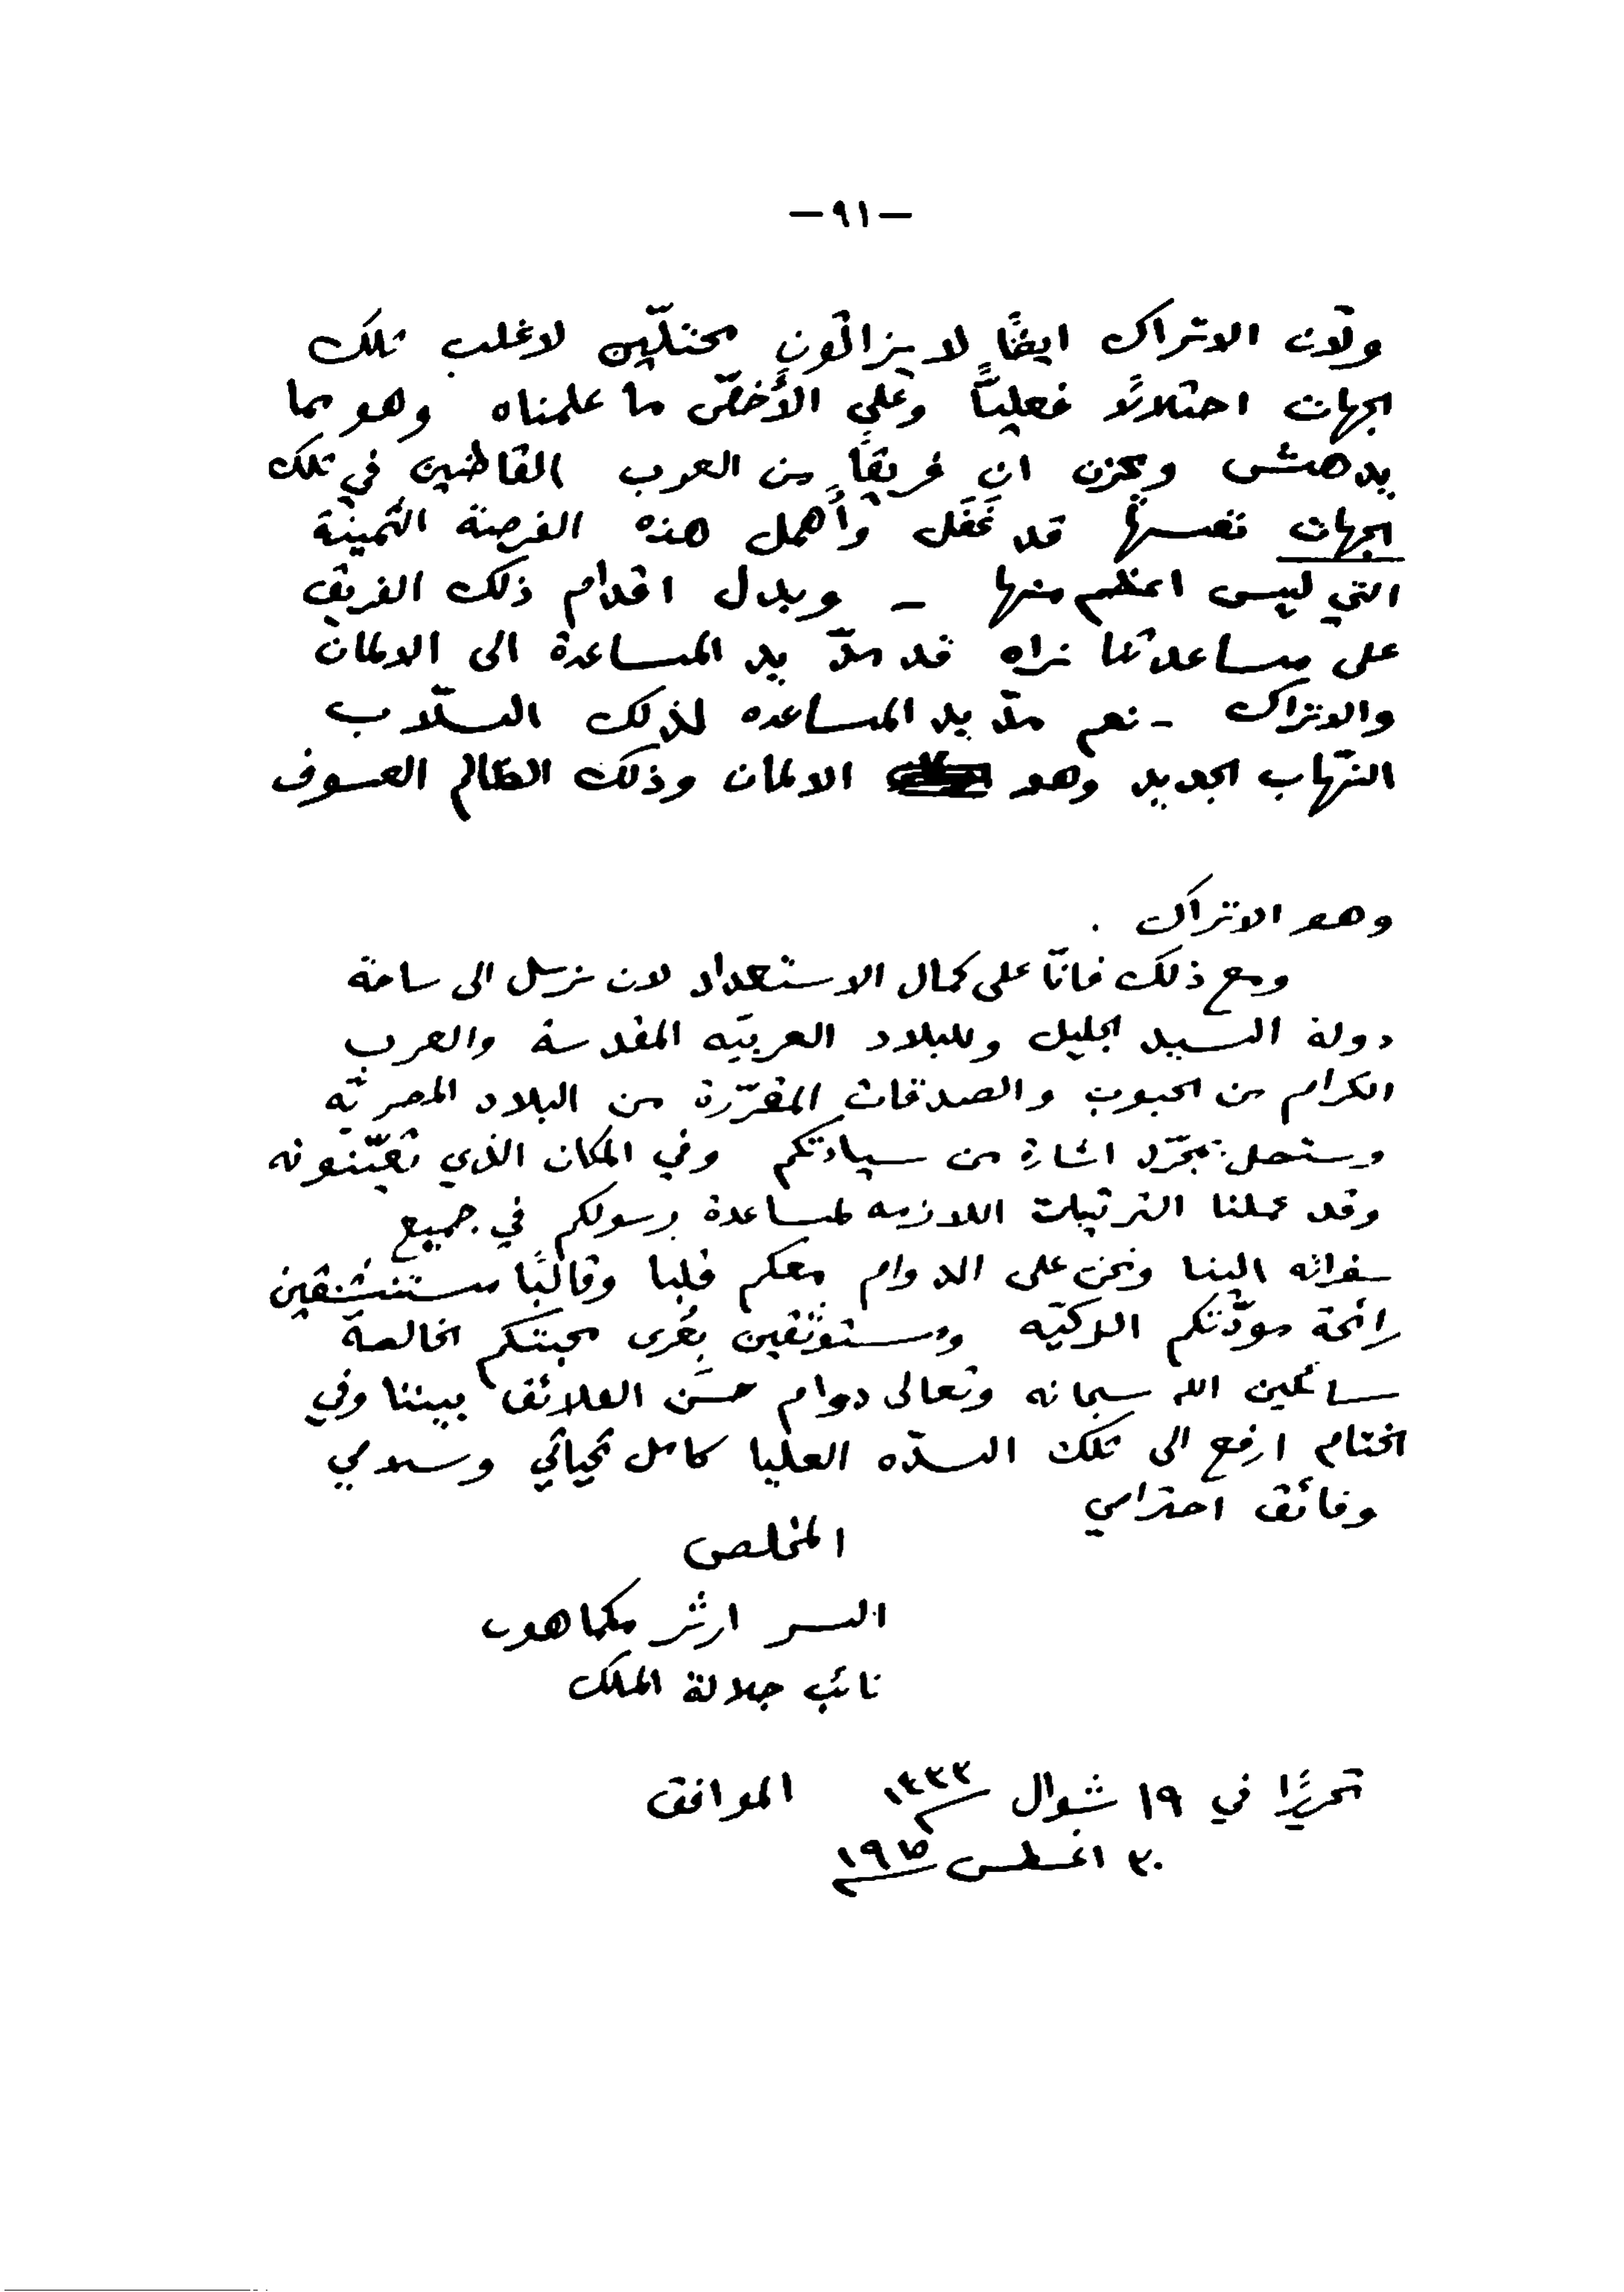 — ٩١ —
ولان الاتراك ايضًا لا يزالون محتلّين لاغلب تلك
الجهات احتلالًا فعليًّا وعلى الأخصّ ما علمناه وهو مما
يدهش ويحزن ان فريقًا من العرب القاطنين في تلك
الجهات نفسها قد غَفَل وأهمل هذه الفرصة الثمينة
التي ليس اعظم منها – وبدل اقدام ذلك الفريق
على مساعدتنا نراه قد مدّ يد المساعدة الى الالمان
والاتراك - نعم مدّ يد المساعده لذلك السلّاب
النهّاب الجديد وهو الالمان وذلك الظالم العسوف
وهو الاتراك .
ومع ذلك فانّا على كمال الاستعداد لان نرسل الى ساحة
دولة السيد الجليل وللبلاد العربيّه المقدسة والعرب
الكرام من الحبوب والصدقات المقرّرة من البلاد المصريّه
وستصل بمجرّد اشارة من سيادتكم وفي المكان الذي تعيّنونه
وقد عملنا الترتيبات اللازمه لمساعدة رسولكم في جميع
سفراته الينا ونحن على الدوام معكم قلبا وقالبًا مستنشقين
رائحة مودّتكم الذكيّه ومستوثقين بعُرى محبتكم الخالصة
سائلين الله سبحانه وتعالى دوام حسَن العلائق بيننا وفي
الختام ارفع الى تلك السدّه العليا كامل تحياتي وسلامي
وفائق احترامي
المخلص
السر ارثر مكماهون
نائب جلالة الملك
تحريرًا في ١٩ شوال ١٣٣٣ الموافق
٣٠ اغسطس ١٩١٥